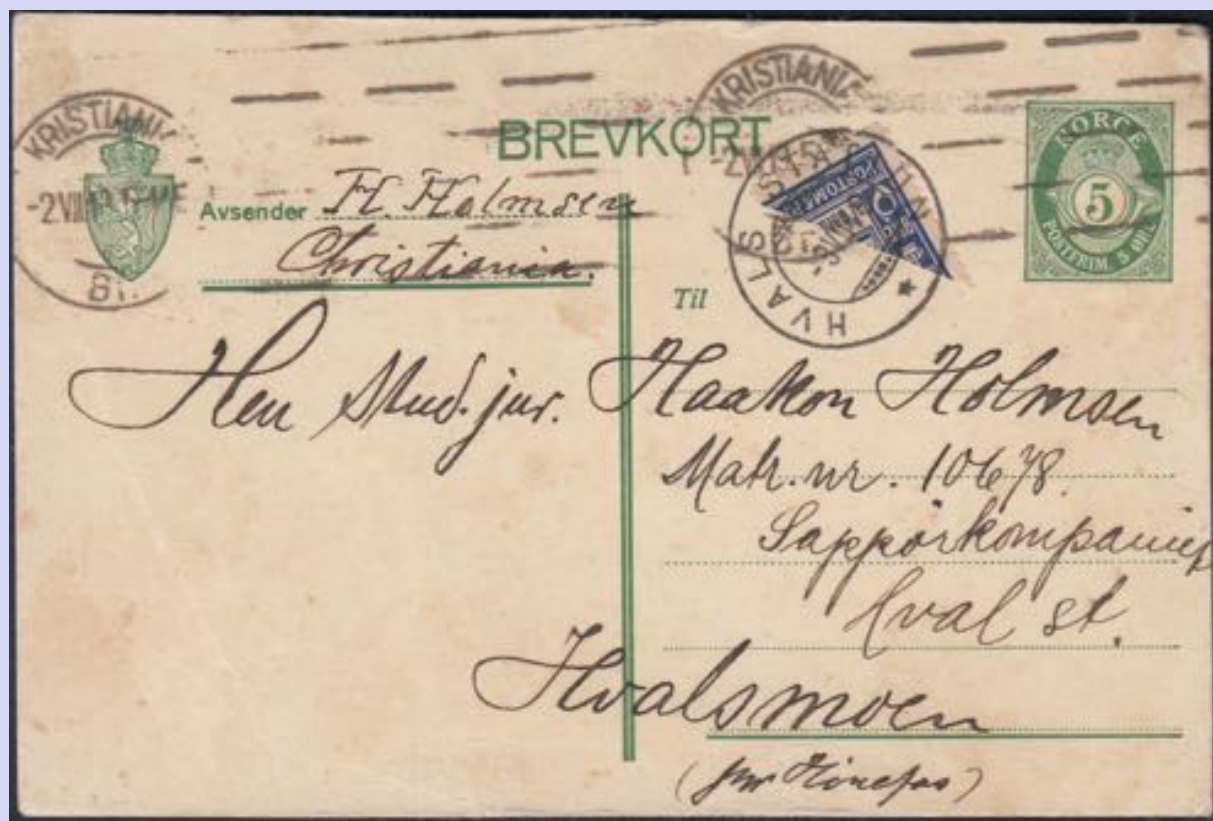 KRISTIANIA
BREVKORT
KRISTIANIA
NORGE
5
POSTFRIM. 5 ØRE
Avsender H. Holmsen
Christiania.
Til
HVALS
Herr Stud. jur. Haakon Holmsen
Matr. nr. 10678.
Sappørkompaniet
Hval st.
Hvalsmoen
(pr Hönefos)